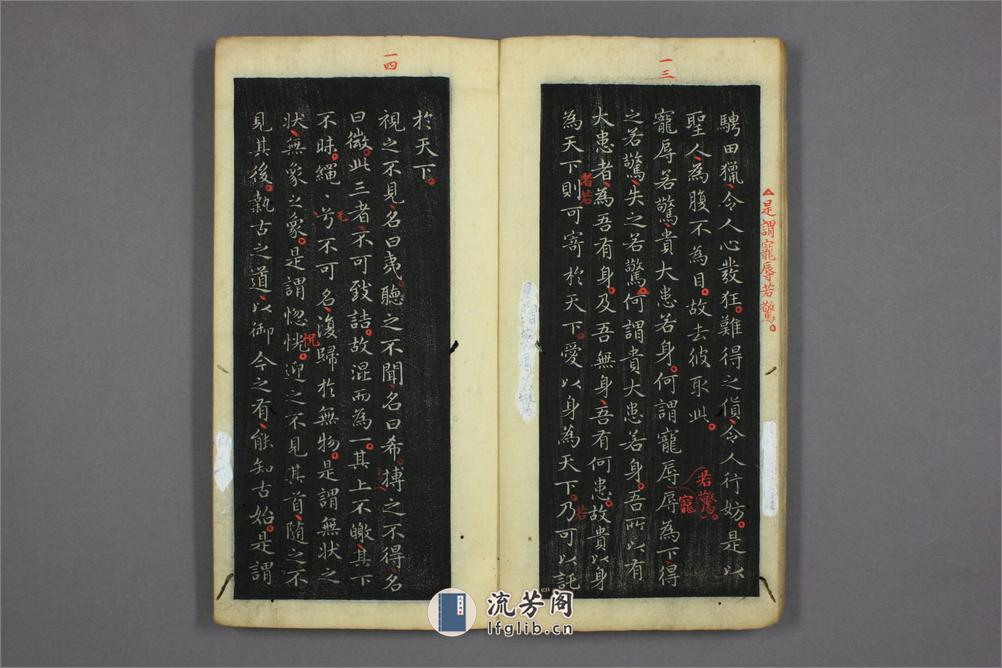 一三
△是謂寵辱若驚。
騁田獵、令人心發狂。難得之貨、令人行妨。是以
聖人、為腹不為目。故去彼取此。
若驚。
寵
寵辱若驚、貴大患若身。何謂寵辱辱為下、得
之若驚、失之若驚。何謂貴大患若身。吾所以有
大患者、為吾有身。及吾無身、吾有何患。故貴以身
者若
為天下則可寄於天下。愛以身為天下。乃可以託
若
一四
於天下。
視之不見、名曰夷。聽之不聞、名曰希。搏之不得、名
曰微。此三者、不可致詰。故混而為一。其上不皦、其下
不昧。繩〻兮不可名、復歸於無物。是謂無狀之
狀、無象之象。是謂惚恍。迎之不見其首、隨之不
怳
見其後。執古之道、以御今之有、能知古始。是謂
流芳阁
lfglib.cn